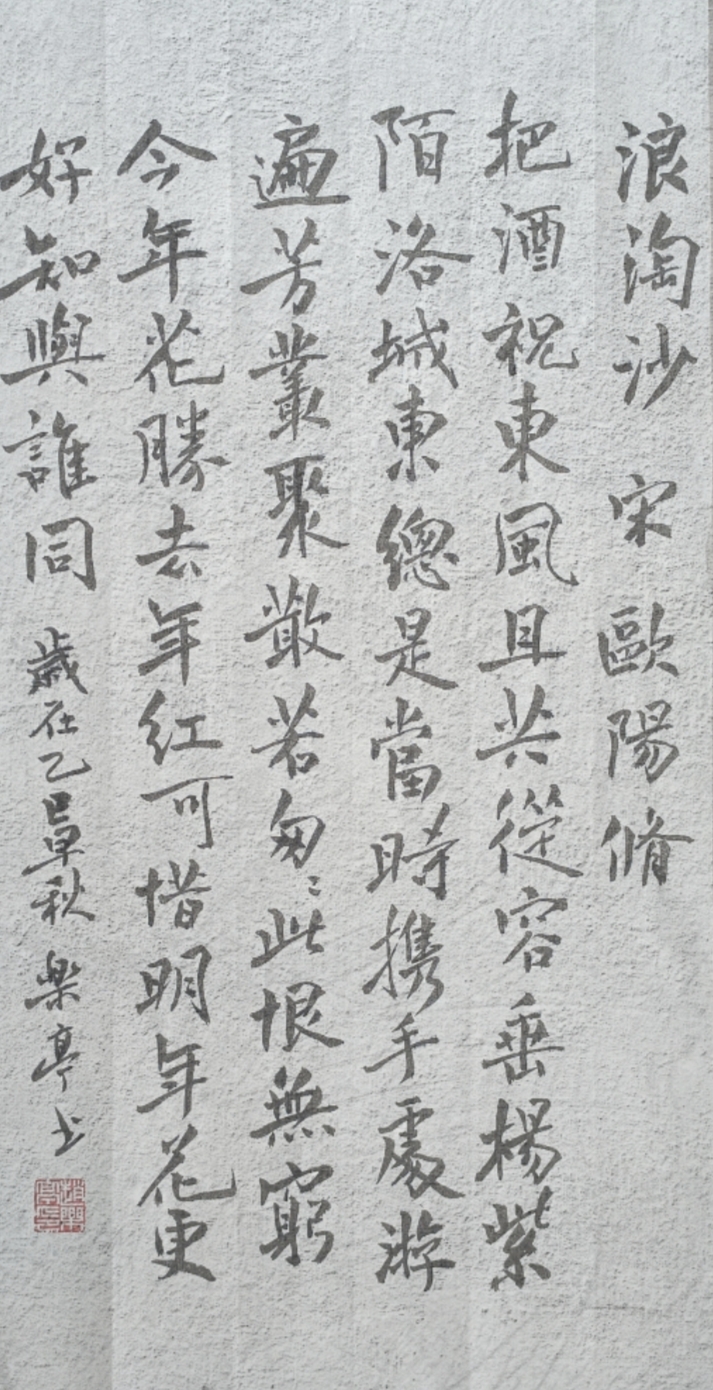 浪淘沙 宋 歐陽脩
把酒祝東風且共從容垂楊紫
陌洛城東總是當時携手處游
遍芳叢聚散苦匆〻此恨無窮
今年花勝去年紅可惜明年花更
好知與誰同 歲在乙巳早秋 楽亭书